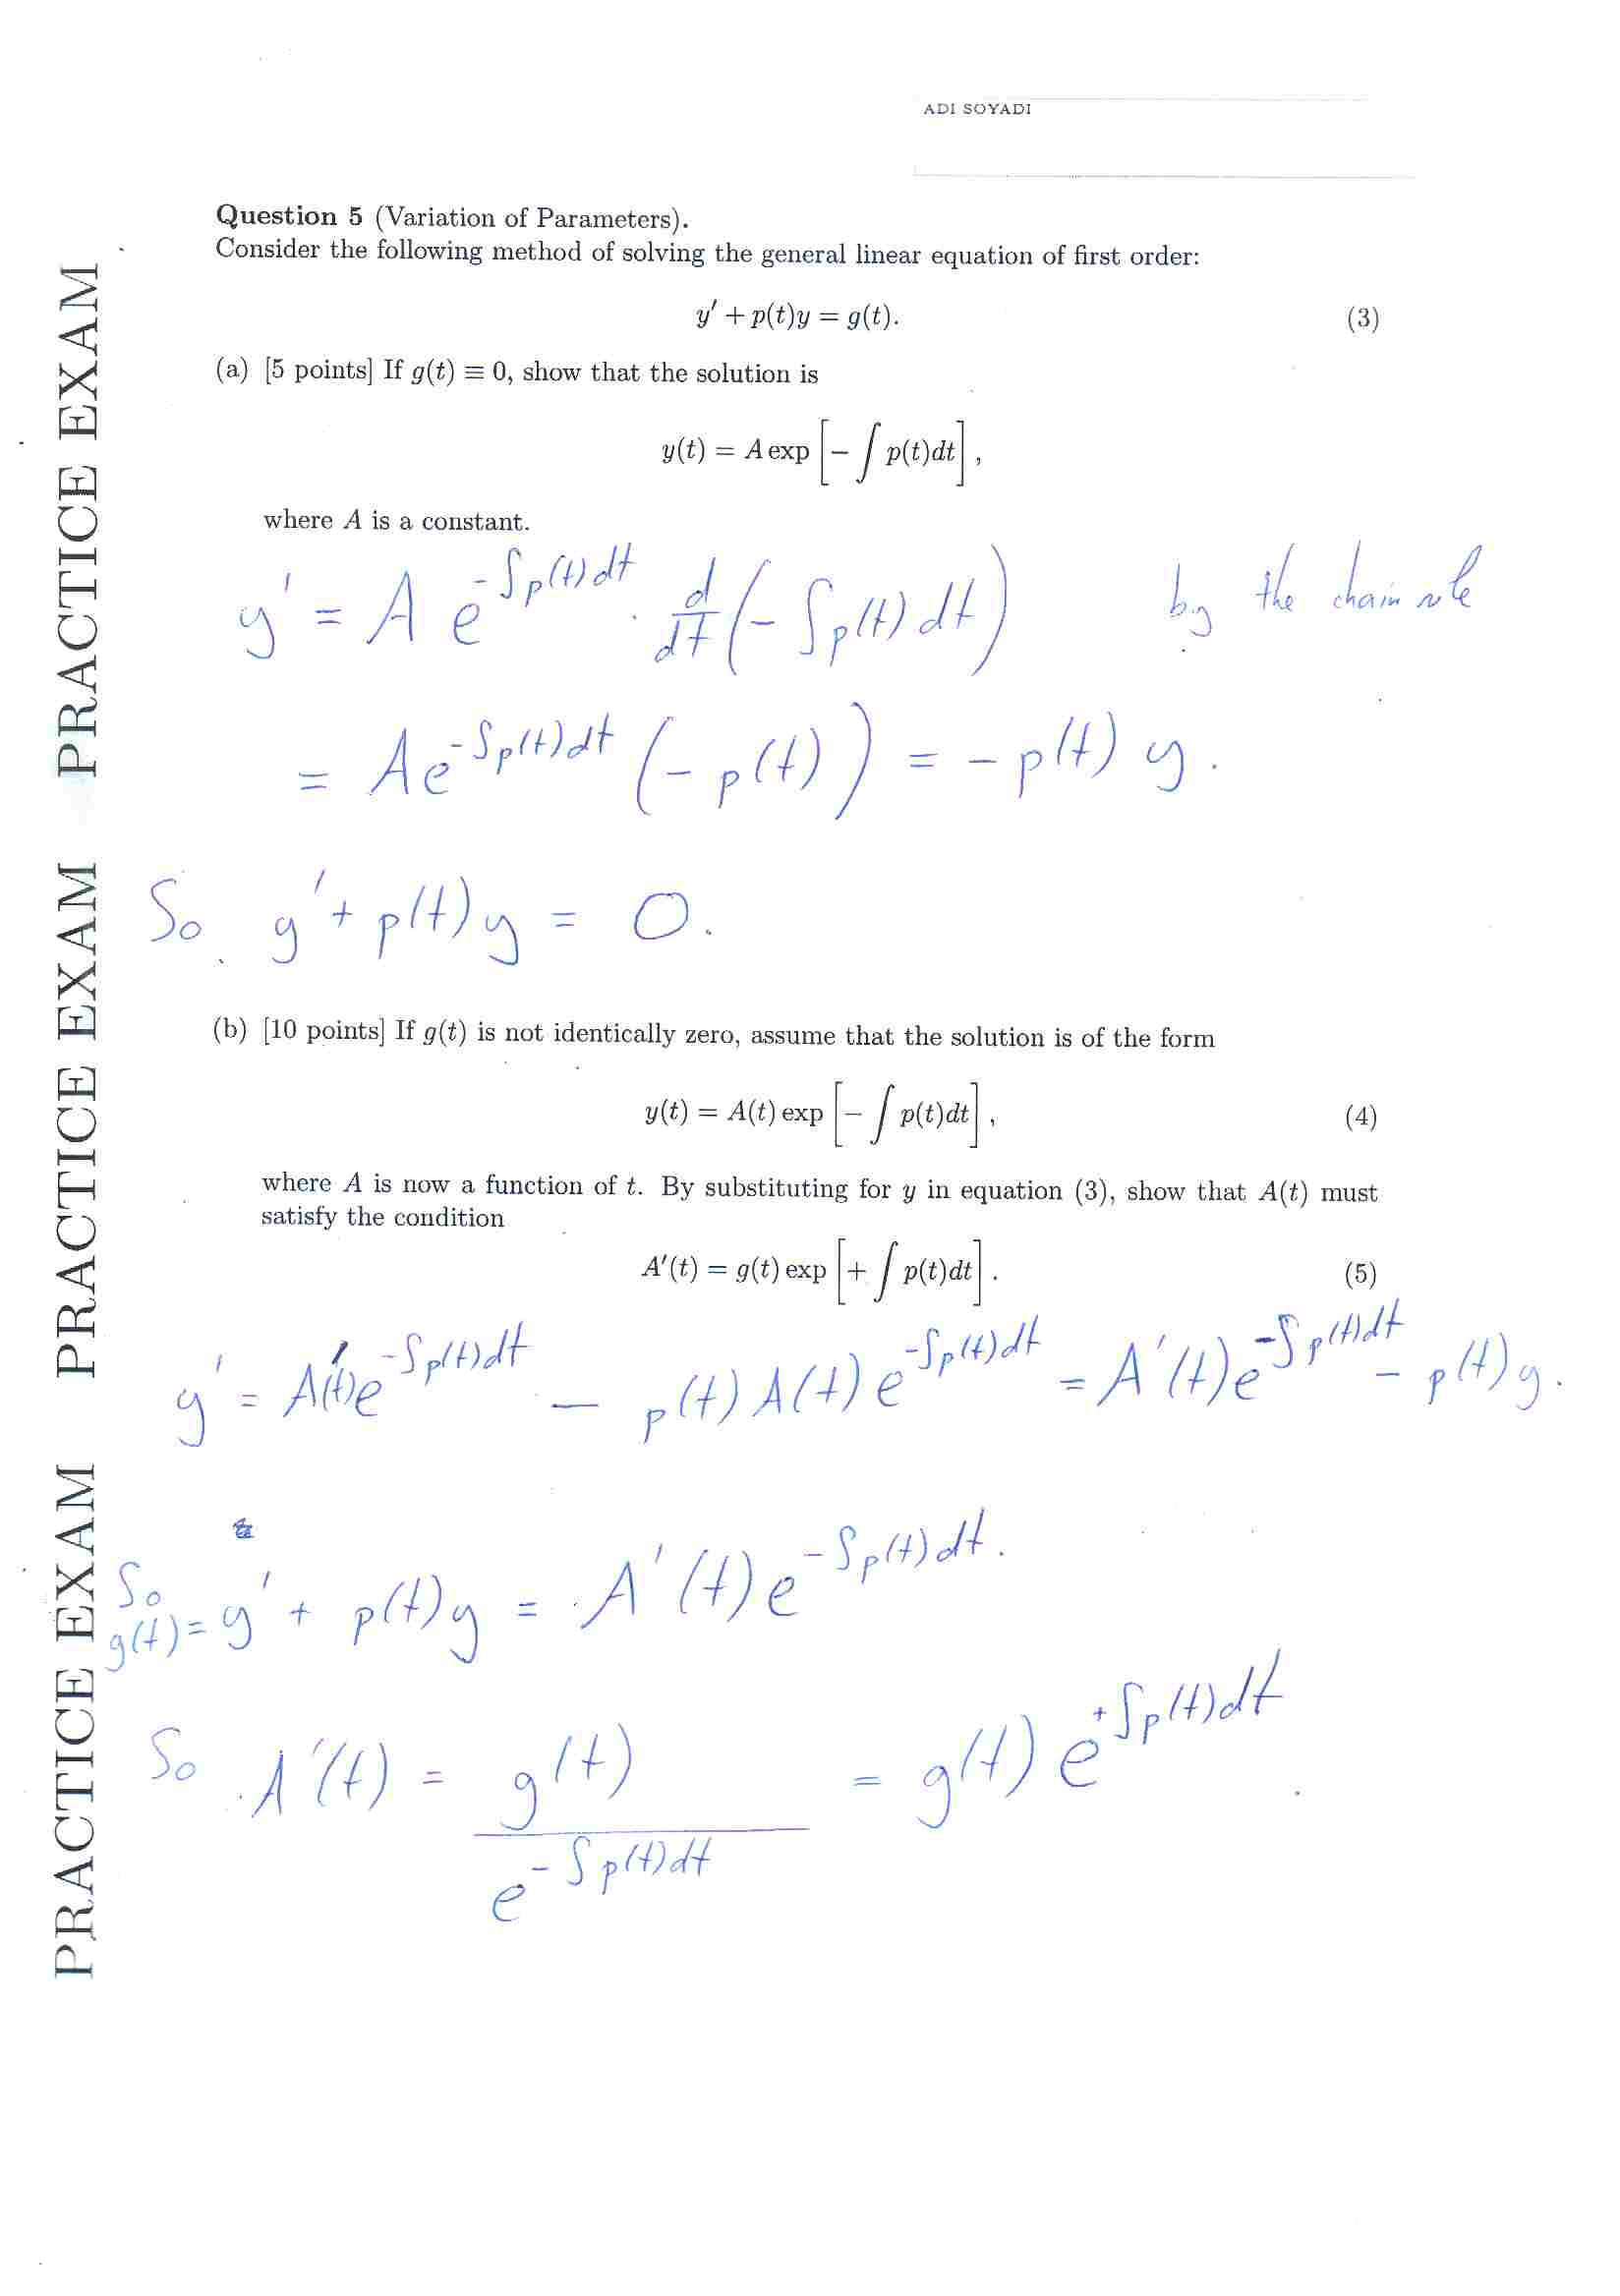 ADI SOYADI
PRACTICE EXAM PRACTICE EXAM PRACTICE EXAM PRACTICE EXAM
Question 5 (Variation of Parameters).
Consider the following method of solving the general linear equation of first order:
y′ + p(t)y = g(t). (3)
(a) [5 points] If g(t) ≡ 0, show that the solution is
y(t) = A exp [− ∫ p(t)dt] ,
where A is a constant.
y′ = A e^{-∫p(t)dt} · d/dt (− ∫p(t) dt) by the chain rule
= A e^{-∫p(t)dt} (− p(t)) = − p(t) y .
So y′ + p(t) y = 0.
(b) [10 points] If g(t) is not identically zero, assume that the solution is of the form
y(t) = A(t) exp [− ∫ p(t)dt] , (4)
where A is now a function of t. By substituting for y in equation (3), show that A(t) must
satisfy the condition
A′(t) = g(t) exp [+ ∫ p(t)dt] . (5)
y′ = A′(t)e^{-∫p(t)dt} − p(t) A(t) e^{-∫p(t)dt} = A′(t)e^{-∫p(t)dt} − p(t)y.
So
g(t) = y′ + p(t)y = A′(t) e^{-∫p(t)dt} .
So A′(t) = g(t) / e^{-∫p(t)dt} = g(t) e^{+∫p(t)dt} .